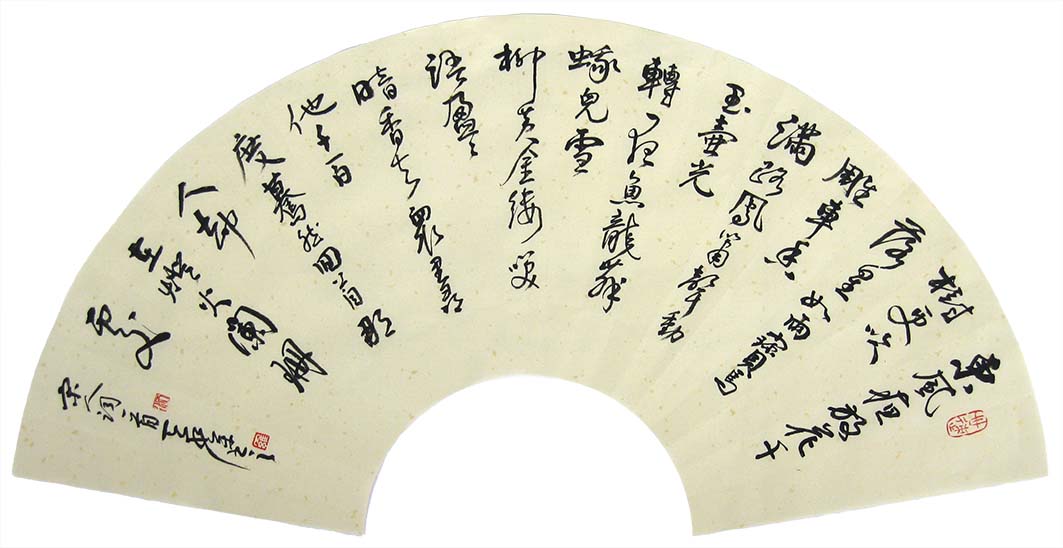 東風夜放花千
樹更吹
落星如雨寶馬
雕車香
滿路鳳簫聲動
玉壺光
轉一夜魚龍舞
蛾兒雪
柳黃金縷笑
語盈盈
暗香去眾裏尋
他千百
度驀然回首那
人卻
在燈火闌珊
處
宋人詞一首